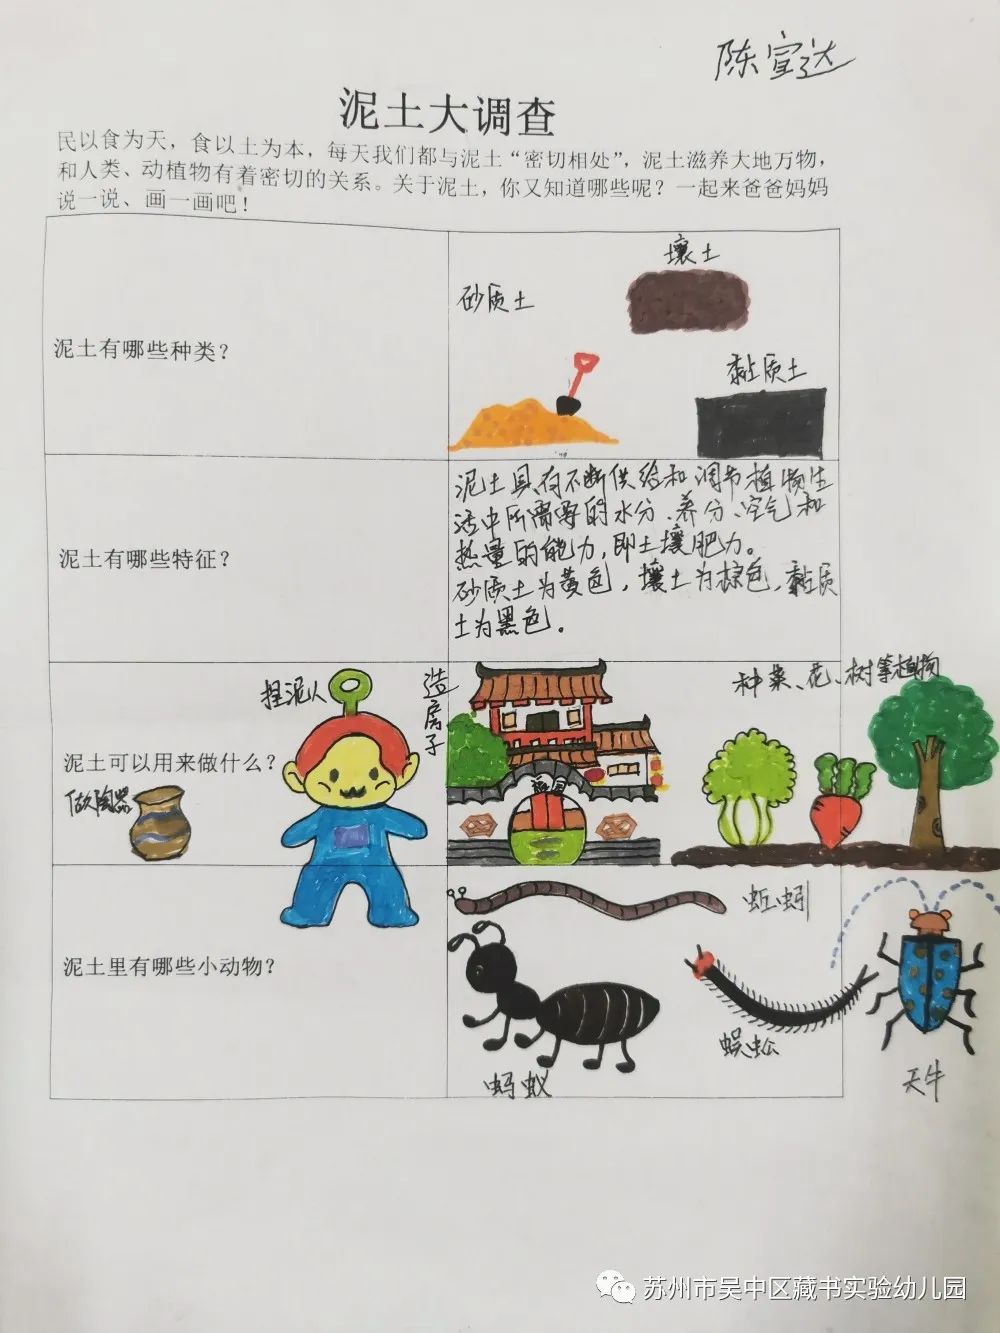 陈宣达
泥土大调查
民以食为天，食以土为本，每天我们都与泥土“密切相处”，泥土滋养大地万物，
和人类、动植物有着密切的关系。关于泥土，你又知道哪些呢？一起来爸爸妈妈
说一说、画一画吧！
泥土有哪些种类？
壤土
砂质土
黏质土
泥土有哪些特征？
泥土具有不断供给和调节植物生
活中所需要的水分、养分、空气和
热量的能力，即土壤肥力。
砂质土为黄色，壤土为棕色，黏质
土为黑色。
泥土可以用来做什么？
捏泥人
造房子
做陶器
种菜、花、树等植物
泥土里有哪些小动物？
蚯蚓
蜈蚣
蚂蚁
天牛
苏州市吴中区藏书实验幼儿园